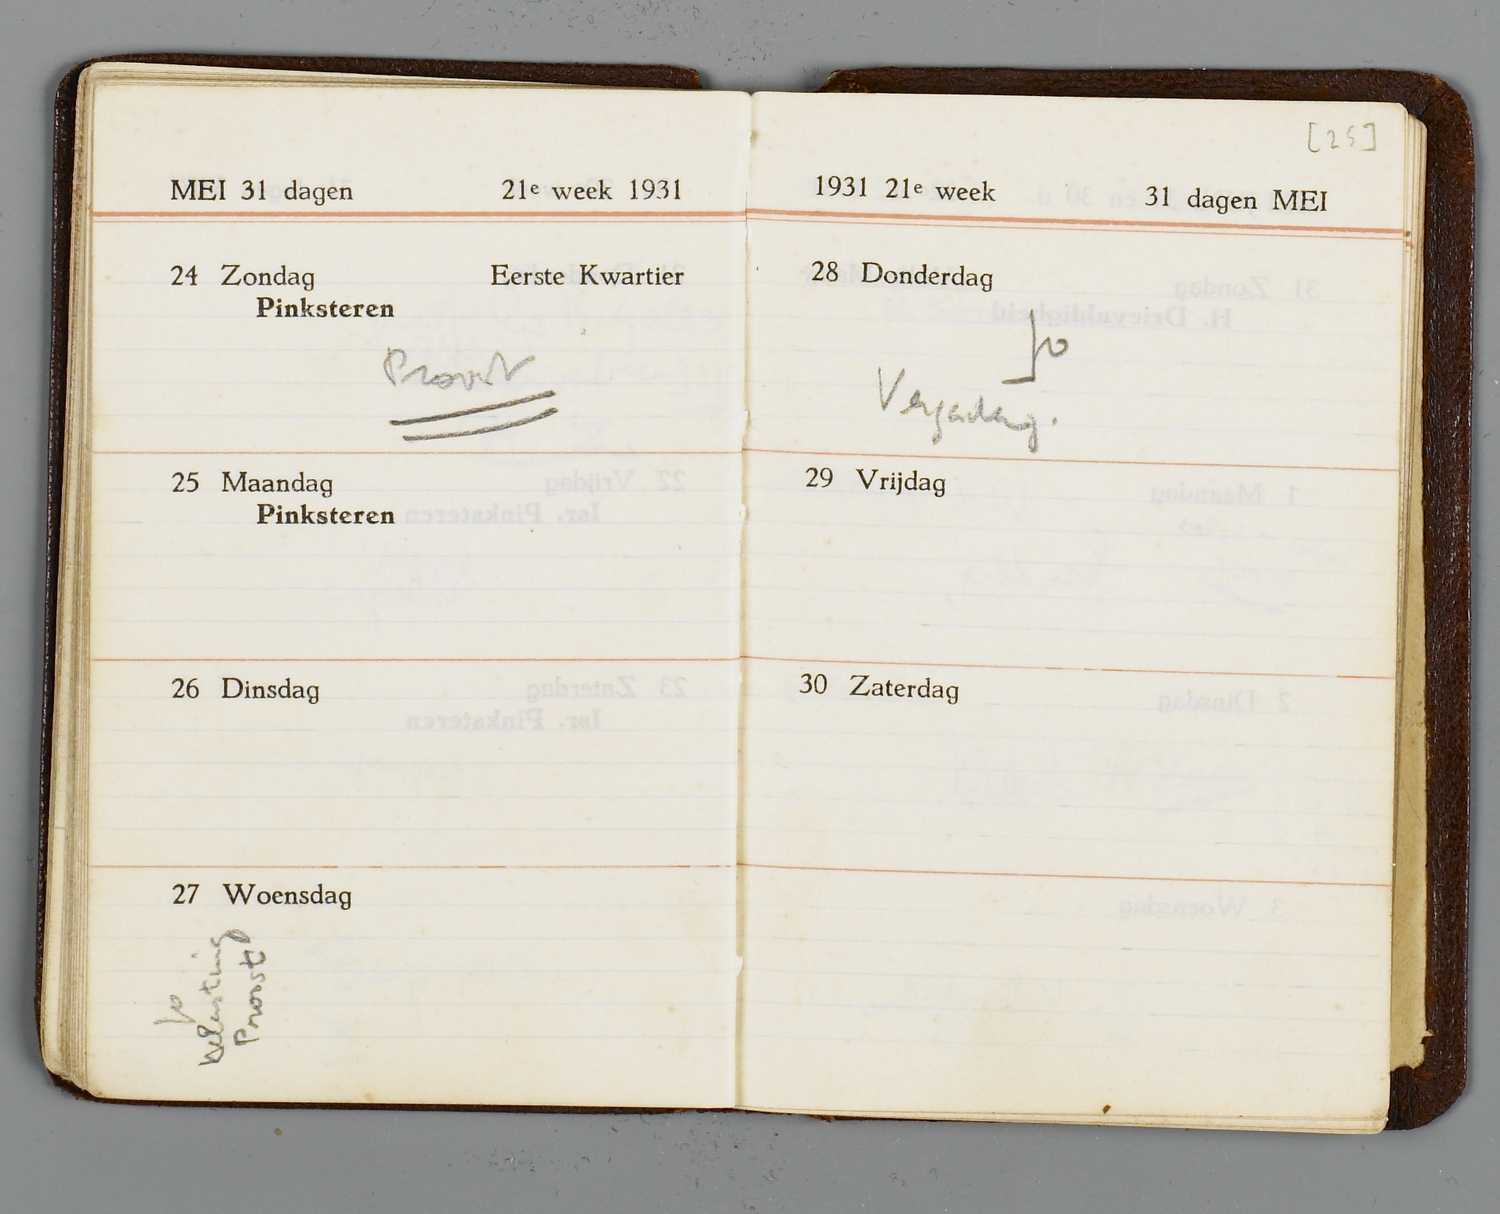 MEI 31 dagen 21e week 1931
24 Zondag Eerste Kwartier
Pinksteren
Proost
25 Maandag
Pinksteren
26 Dinsdag
27 Woensdag
Jo
belasting
Proost
[25]
1931 21e week 31 dagen MEI
28 Donderdag
Jo
29 Vrijdag
30 Zaterdag